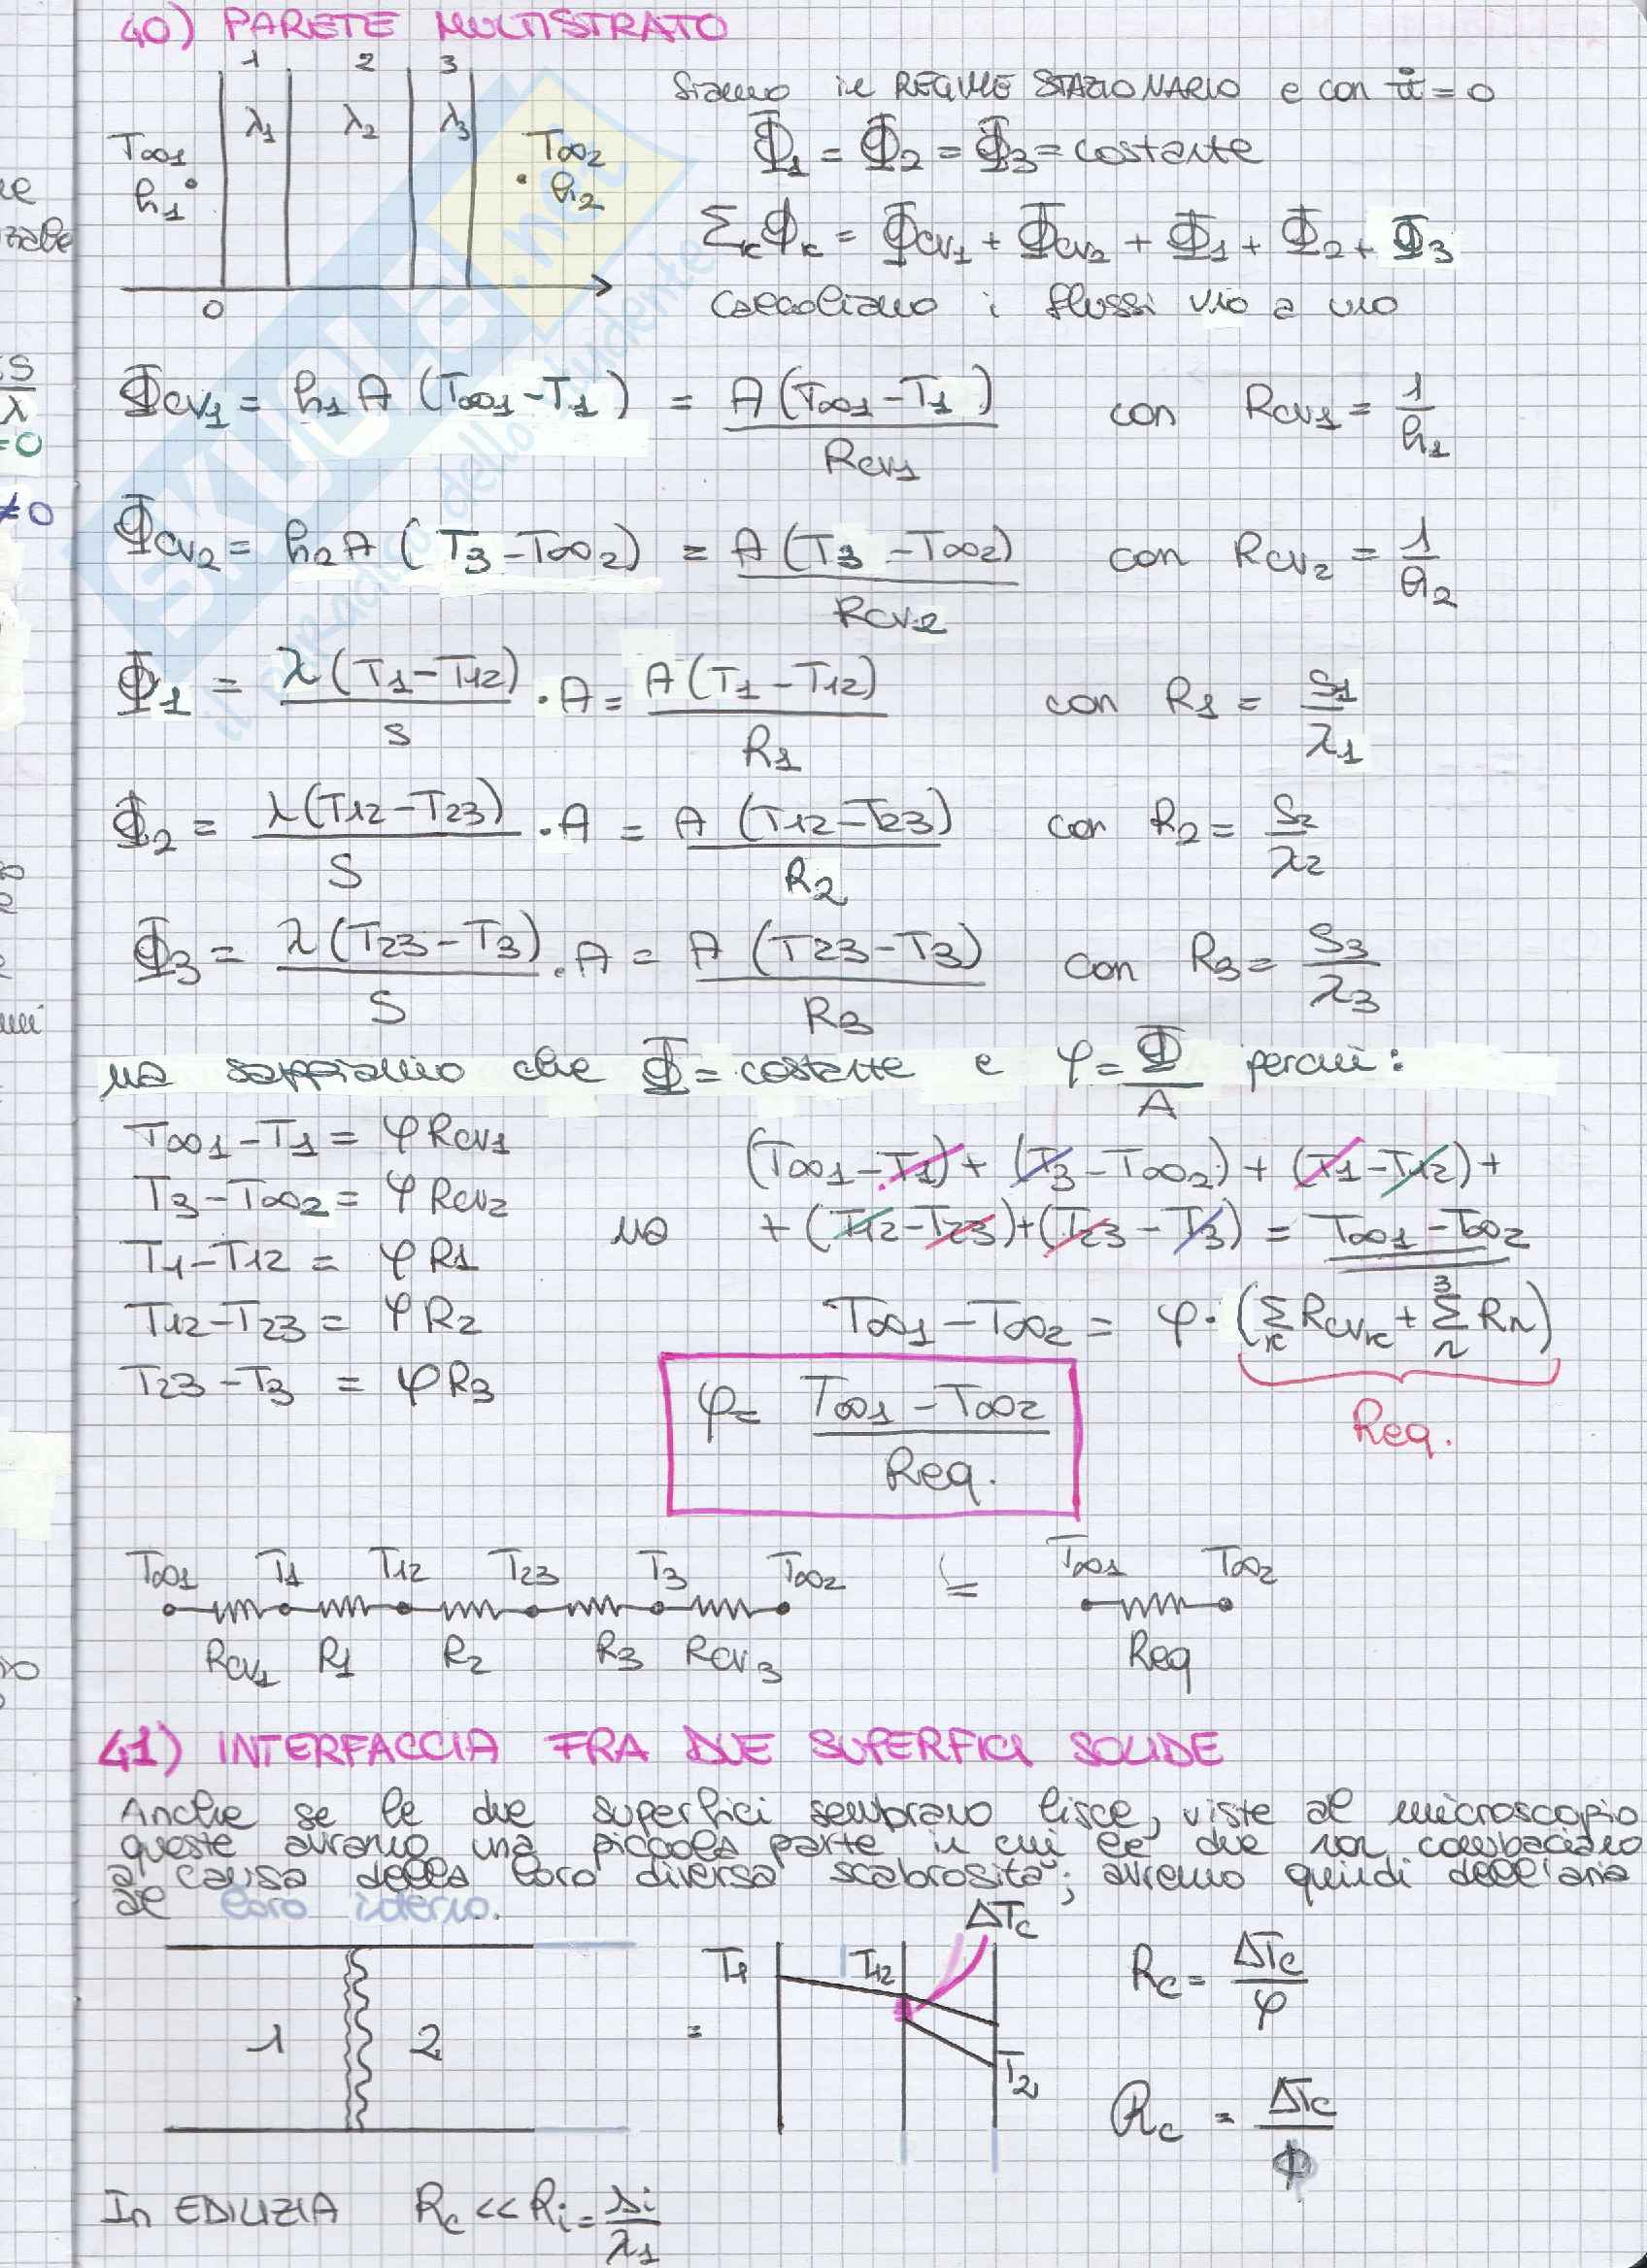 40) PARETE MULTISTRATO
1 2 3
λ1 λ2 λ3
T∞1
h1
T∞2
h2
0
Siamo in REGIME STAZIONARIO e con u̇ = 0
Φ1 = Φ2 = Φ3 = costante
ΣκΦκ = Φcv1 + Φcv2 + Φ1 + Φ2 + Φ3
Calcoliamo i flussi uno a uno
Φcv1 = h1 A (T∞1 - T1) = A(T∞1 - T1) / Rcv1 con Rcv1 = 1/h1
Φcv2 = h2 A (T3 - T∞2) = A(T3 - T∞2) / Rcv2 con Rcv2 = 1/h2
Φ1 = λ(T1 - T12)/s · A = A(T1 - T12) / R1 con R1 = s1/λ1
Φ2 = λ(T12 - T23)/S · A = A (T12 - T23) / R2 con R2 = S2/λ2
Φ3 = λ(T23 - T3)/S · A = A (T23 - T3) / R3 con R3 = S3/λ3
ma sappiamo che Φ = costante e φ = Φ/A percui:
T∞1 - T1 = φ Rcv1
T3 - T∞2 = φ Rcv2
T1 - T12 = φ R1
T12 - T23 = φ R2
T23 - T3 = φ R3
ma
(T∞1 - T1) + (T3 - T∞2) + (T1 - T12) +
+ (T12 - T23) + (T23 - T3) = T∞1 - T∞2
T∞1 - T∞2 = φ · (Σκ Rcvκ + Σ³n Rn)
Req.
φ = T∞1 - T∞2 / Req.
T∞1 T1 T12 T23 T3 T∞2 = T∞1 T∞2
Rcv1 R1 R2 R3 Rcv3 Req
41) INTERFACCIA FRA DUE SUPERFICI SOLIDE
Anche se le due superfici sembrano lisce, viste al microscopio
queste avranno una piccola parte in cui le due non combaciano
a causa della loro diversa scabrosità; avremo quindi dell'aria
al loro interno.
1 2
=
T1 T12 ΔTc
T2
Rc = ΔTc/φ
Rc = ΔTc/Φ
In EDILIZIA Rc << Ri = si/λ1
SKUOLA.net